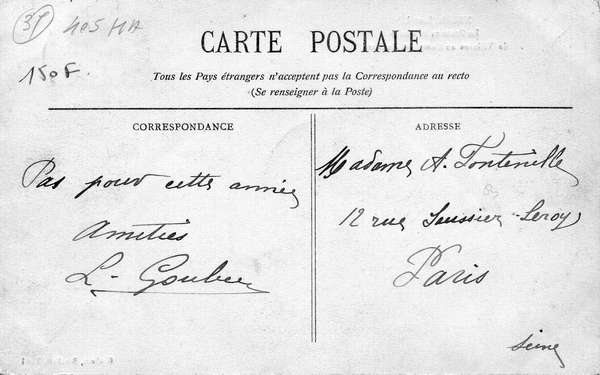 37 405 HA
CARTE POSTALE
150F.
Tous les Pays étrangers n'acceptent pas la Correspondance au recto
(Se renseigner à la Poste)
CORRESPONDANCE
Pas pour cette année
Amitiés
L.
ADRESSE
Madame A. Fontenille
12 rue Saussier-Leroy
Paris
Seine